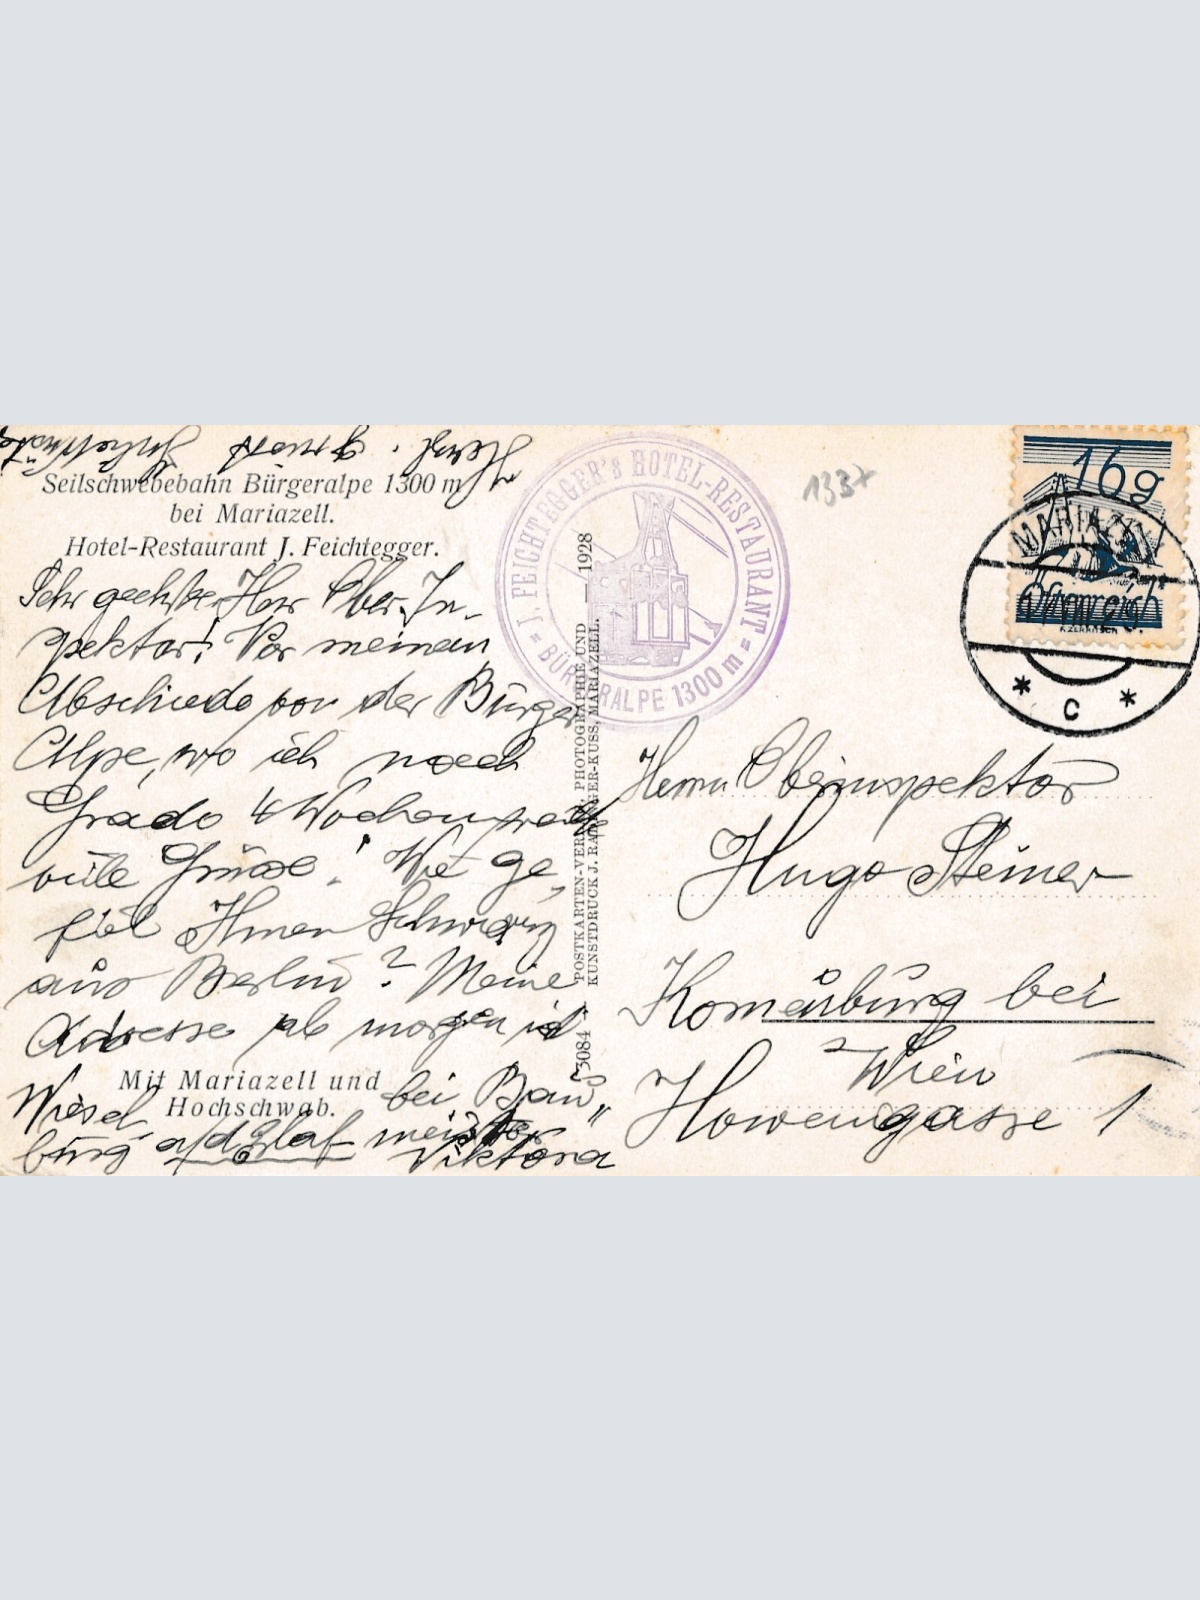 Seilschwebebahn Bürgeralpe 1300 m
bei Mariazell.
Hotel-Restaurant J. Feichtegger.
Sehr geehrter Herr Ober-In-
spektor! Vor meinem
Abschiede von der Bürger
Alpe, wo ich nach
Grado 4 Wochen war
viele Grüsse! Wie ge-
fiel Ihnen
aus Berlin? Meine
Adresse ab morgen ist
Wiesel
burg a/d Erlaf
bei Bau"
meister
Viktora
Herzl.
Mit Mariazell und
Hochschwab.
J. FEICHTEGGER's HOTEL-RESTAURANT
= BÜRGERALPE 1300 m =
POSTKARTEN-VERLAG, PHOTOGRAPHIE UND
KUNSTDRUCK J. KUSS, MARIAZELL.
1928
1337
16g
Österreich
MARIAZELL
* c *
Herrn Oberinspektor
Hugo Steiner
Korneuburg bei
Wien
1